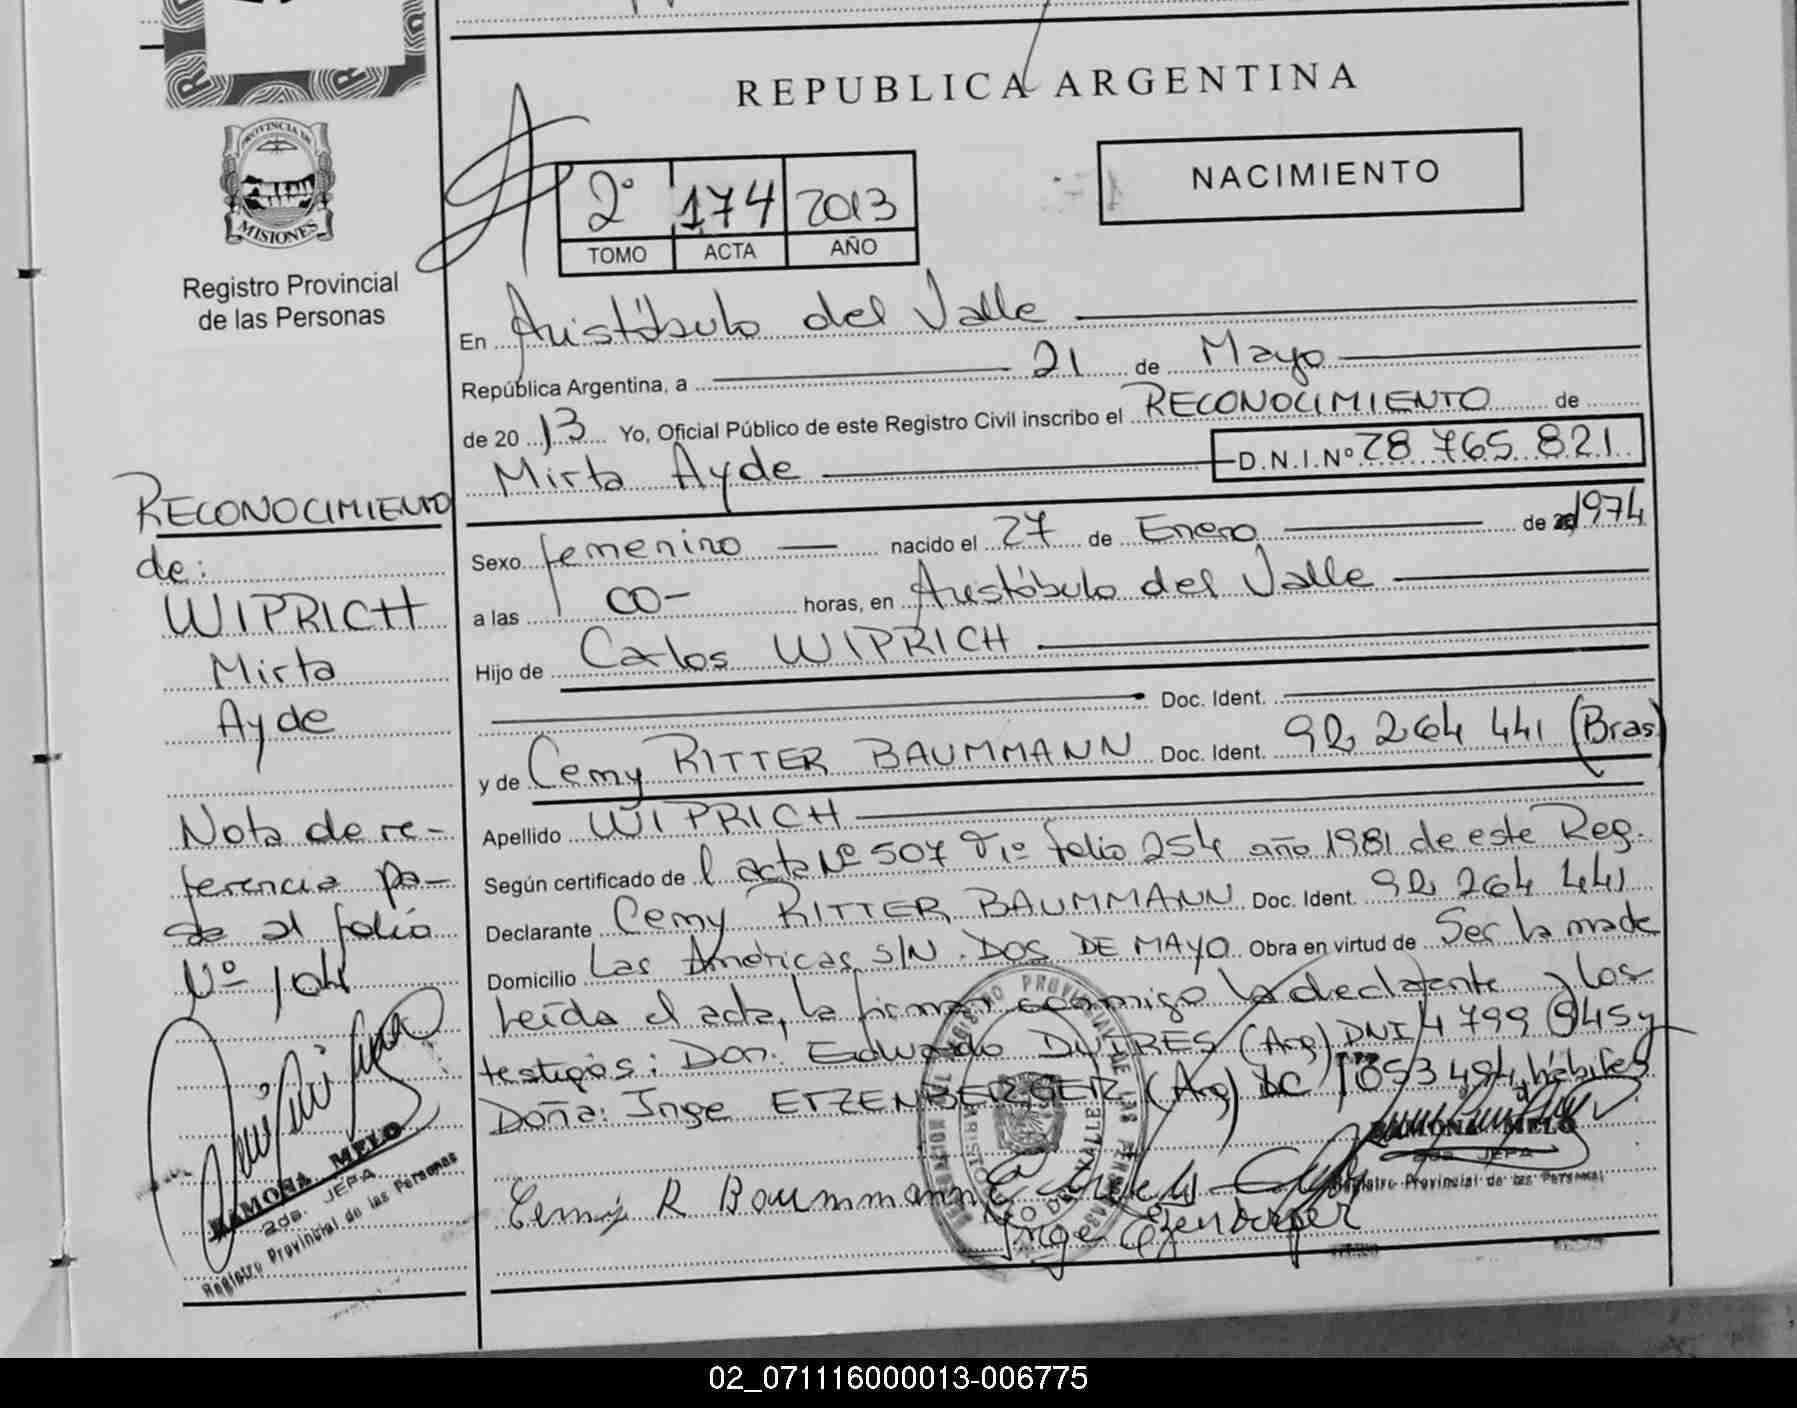 REPUBLICA ARGENTINA
NACIMIENTO
2° 174 2013
TOMO ACTA AÑO
PROVINCIA DE
MISIONES
Registro Provincial
de las Personas
En Aristóbulo del Valle
República Argentina, a 21 de Mayo
de 2013 Yo, Oficial Público de este Registro Civil inscribo el RECONOCIMIENTO de
Mirta Ayde D.N.I.Nº 28 765 821
Sexo femenino nacido el 27 de Enero de 1974
a las 00- horas, en Aristóbulo del Valle
Hijo de Carlos WIPRICH
Doc. Ident.
y de Cemy RITTER BAUMMANN Doc. Ident. 92 264 441 (Bras)
Apellido WIPRICH
Según certificado de l acta Nº 507 Tº 1º folio 254 año 1981 de este Reg.
Declarante Cemy RITTER BAUMMANN Doc. Ident. 92 264 441
Domicilio Las Américas S/N. DOS DE MAYO Obra en virtud de Ser la madre
Leída el acta, la firman conmigo la declarante y los
testigos: Don: Eduardo (Arg) DNI 4 799 945 y
Doña: Inge ETZENBERGER (Arg) LC 1053 494, hábiles
Cemy R Baummann
Inge Etzenberger
RAMONA MELO
2da. JEPA
Registro Provincial de las Personas
RECONOCIMIENTO
de:
WIPRICH
Mirta
Ayde
Nota de re-
ferencia pa-
sa al folio
Nº 104
RAMONA MELO
2da. JEPA
Registro Provincial de las Personas
02_071116000013-006775